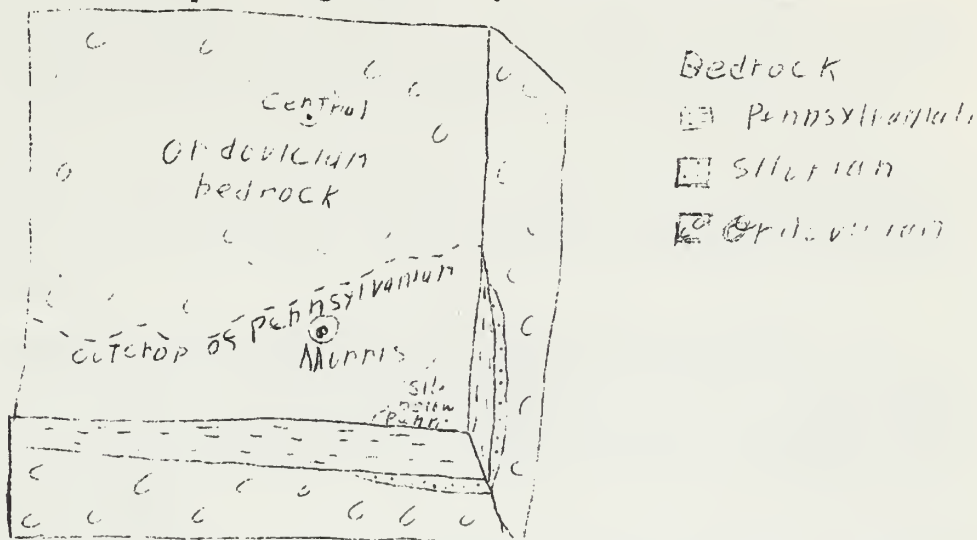 Central
Ordovician
bedrock
outcrop of pennsylvanian
Morris
sil.
below
penn.
Bedrock
Pennsylvanian
Silurian
Ordovician